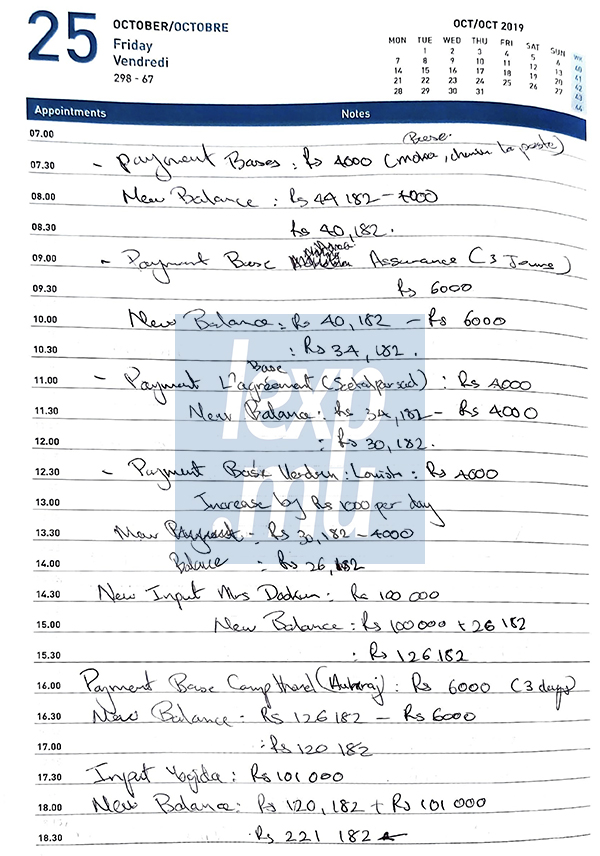 25
OCTOBER/OCTOBRE
Friday
Vendredi
298 - 67
OCT/OCT 2019
MON TUE WED THU FRI SAT SUN WK
1 2 3 4 5 6 40
7 8 9 10 11 12 13 41
14 15 16 17 18 19 20 42
21 22 23 24 25 26 27 43
28 29 30 31 44
Appointments Notes
07.00
07.30 - Payment Bases : Rs 4000 (Moka, chemin la poste)
08.00 New Balance : Rs 44 182 - 4000
08.30 Rs 40,182.
09.00 - Payment Base Assurance (3 Jours)
09.30 Rs 6000
10.00 New Balance : Rs 40,182 - Rs 6000
10.30 : Rs 34,182.
Base
11.00 - Payment L'agrement : Rs 4000
11.30 New Balance : Rs 34,182 - Rs 4000
12.00 : Rs 30,182.
12.30 - Payment Base Verdun : : Rs 4000
13.00 Increase by Rs 1000 per day
13.30 New - Rs 30,182 - 4000
14.00 Balance : Rs 26,182
14.30 New Input Mrs : Rs 100 000
15.00 New Balance : Rs 100 000 + 26 182
15.30 : Rs 126 182
16.00 Payment Base Camp : Rs 6000 (3 days)
16.30 New Balance - Rs 126 182 - Rs 6000
17.00 : Rs 120 182
17.30 Input Yogida : Rs 101 000
18.00 New Balance : Rs 120,182 + Rs 101 000
18.30 Rs 221 182
lexp
.mu